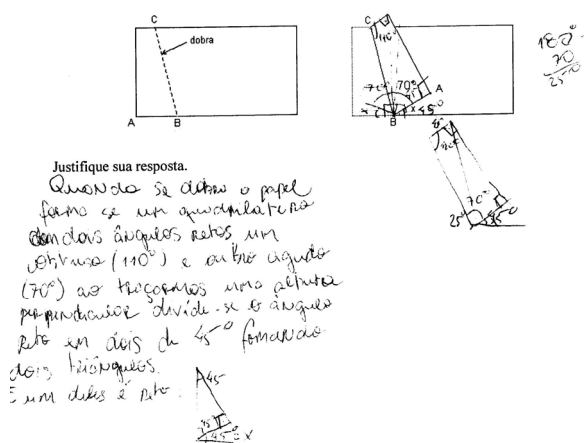 C
dobra
A
B
C
110°
70°
70°
A
x
B
x
45°
180°
70
25°
110°
70°
25°
45°
Justifique sua resposta.
Quando se dobra o papel
forma se um quadrilatero
com dois ângulos retos um
obtuso (110°) e outro agudo
(70°) ao traçarmos uma altura
perpendicular divide-se o ângulo
reto em dois de 45° formando
dois triângulos.
E um deles é reto.
45
45°
45°
x